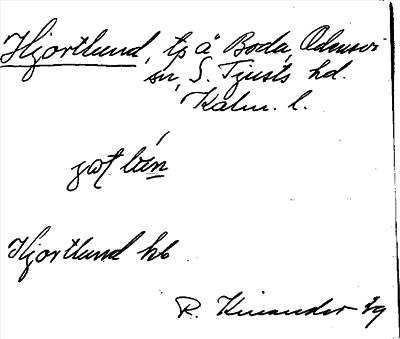 Hjortlund, tp å Boda, Odensvi
sn, S. Tjusts hd.
Kalm. l.
Hjortlund hb
R. Kinander